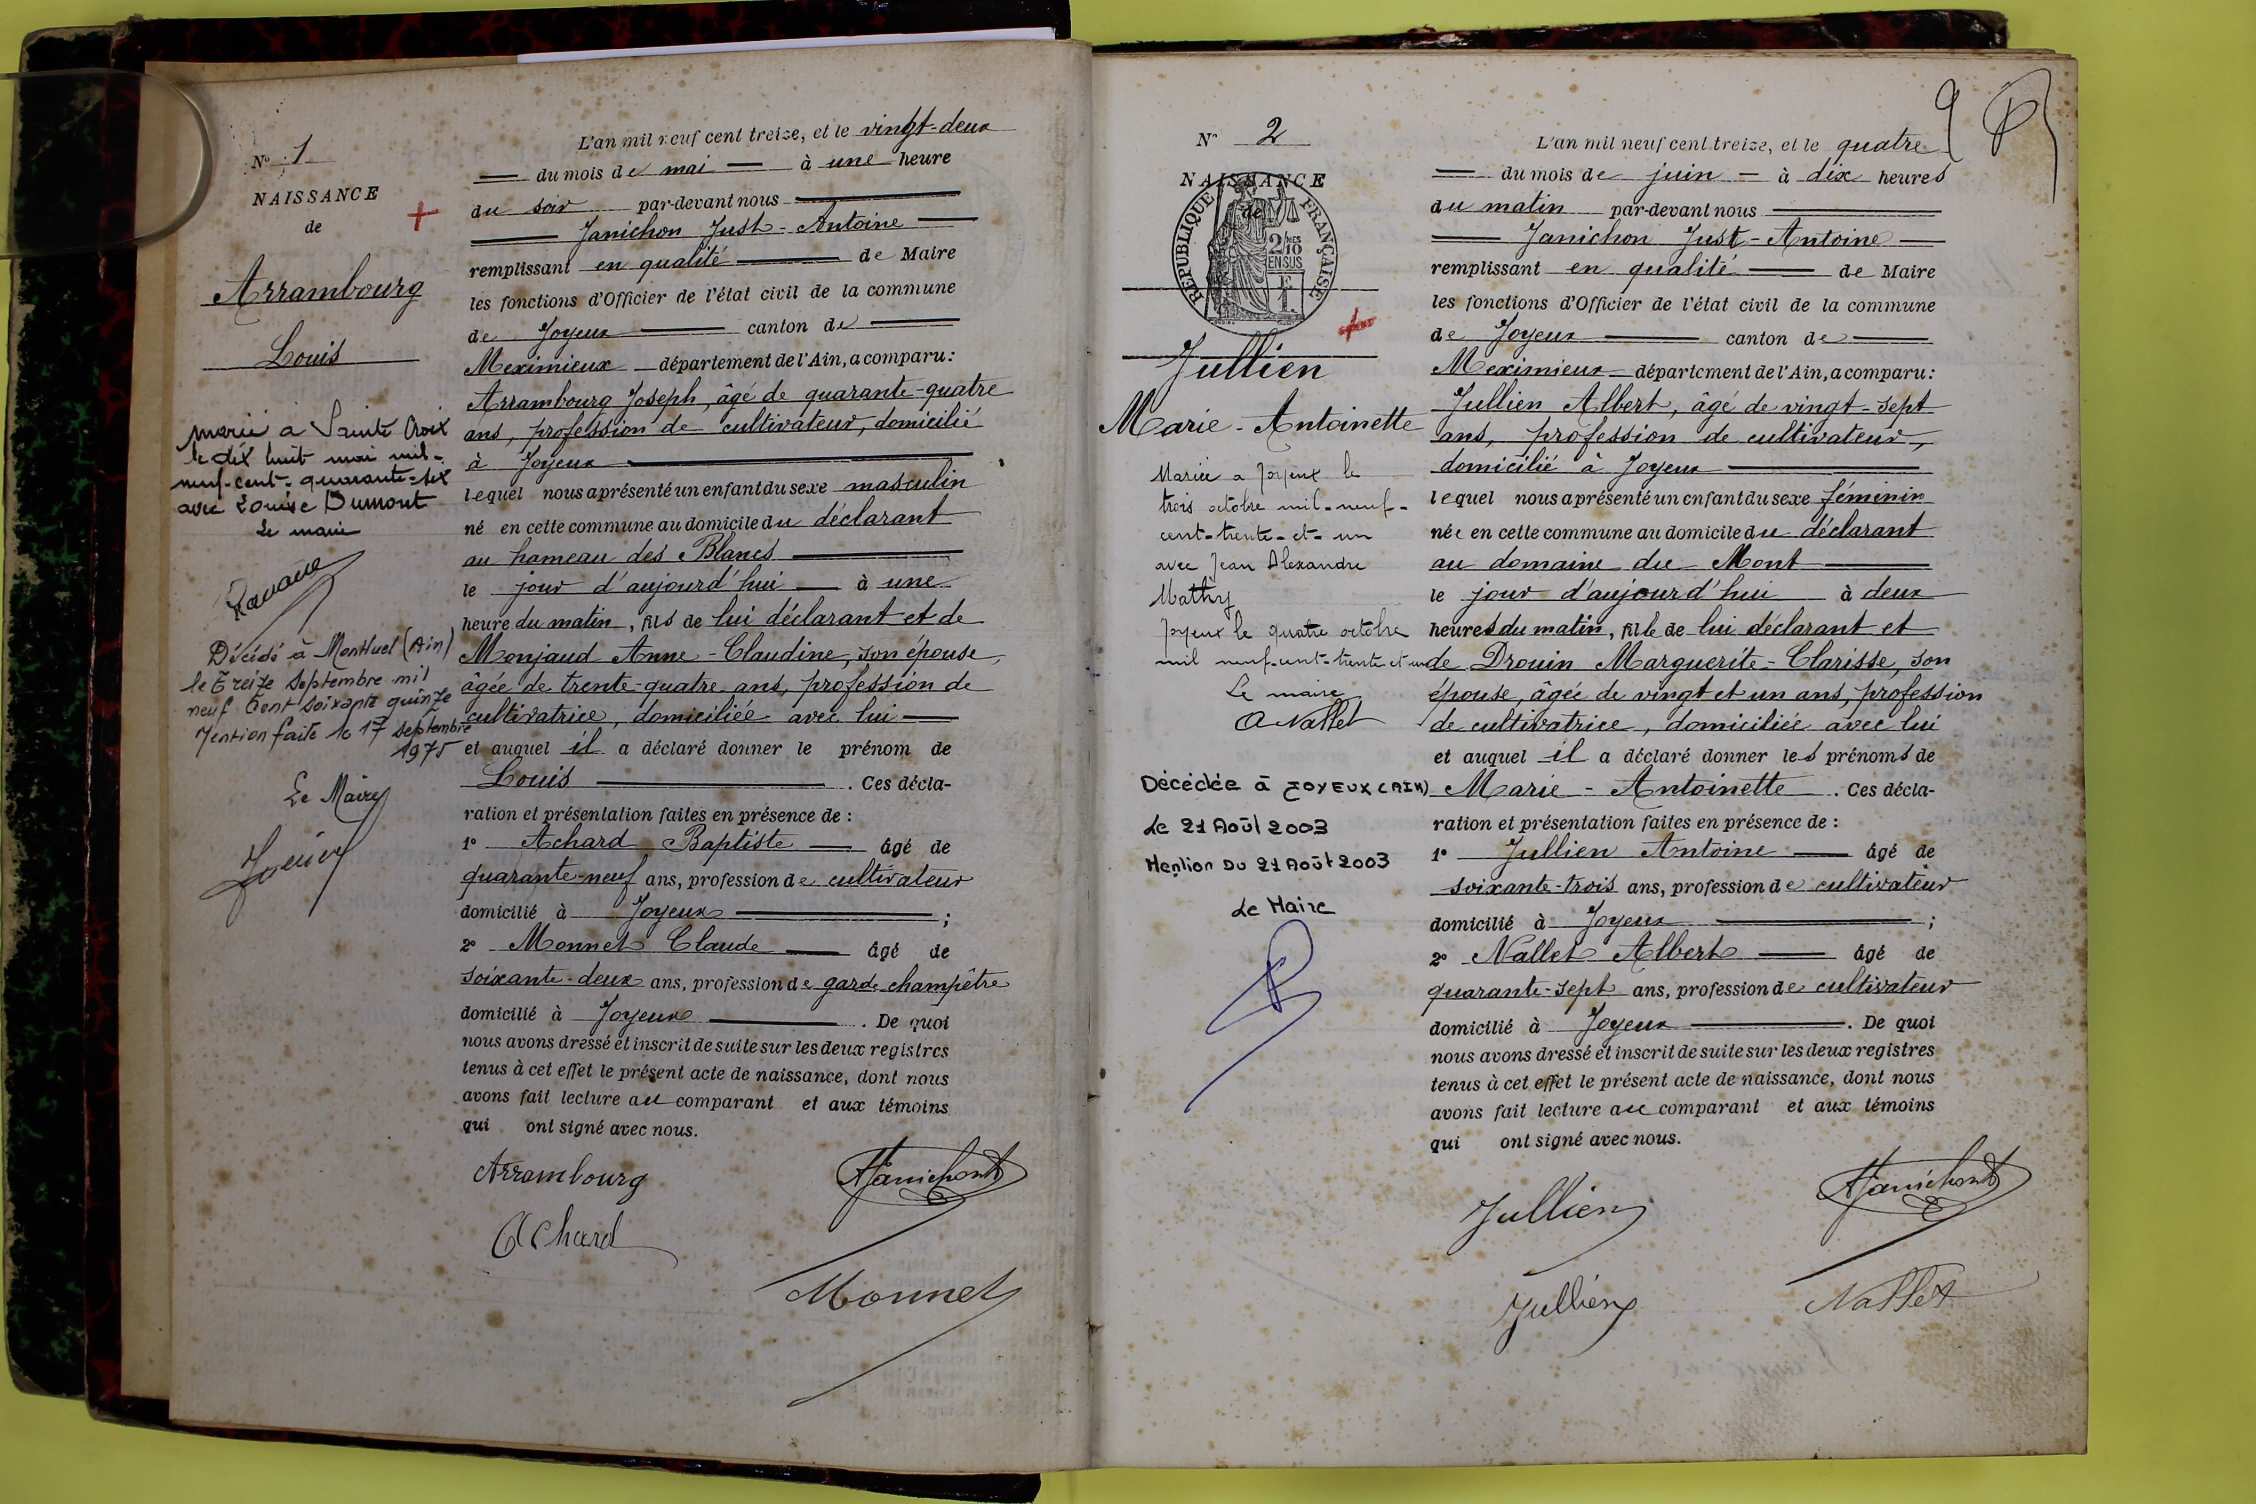 N° 1
NAISSANCE
de
Arrambourg
Louis
marié à Sainte Croix
le dix huit mai mil-
neuf-cent-quarante-six
avec Louise Dumont
Le maire
Décédé à Montluel (Ain)
le Treize Septembre mil
neuf Cent soixante quinze
Mention faite le 17 septembre
1975
Le Maire
L'an mil neuf cent treize, et le vingt-deux
du mois de mai à une heure
du soir par-devant nous
Janichon Just-Antoine
remplissant en qualité de Maire
les fonctions d'Officier de l'état civil de la commune
de Joyeux canton de
Meximieux département de l'Ain, a comparu :
Arrambourg Joseph, âgé de quarante-quatre
ans, profession de cultivateur, domicilié
à Joyeux
lequel nous a présenté un enfant du sexe masculin
né en cette commune au domicile du déclarant
au hameau des Blancs
le jour d'aujourd'hui à une
heure du matin, fils de lui déclarant et de
Monjaud Anne-Claudine, son épouse,
âgée de trente-quatre ans, profession de
cultivatrice, domiciliée avec lui
et auquel il a déclaré donner le prénom de
Louis . Ces décla-
ration et présentation faites en présence de :
1° Achard Baptiste âgé de
quarante-neuf ans, profession de cultivateur
domicilié à Joyeux ;
2° Monnet Claude âgé de
soixante-deux ans, profession de garde champêtre
domicilié à Joyeux . De quoi
nous avons dressé et inscrit de suite sur les deux registres
tenus à cet effet le présent acte de naissance, dont nous
avons fait lecture au comparant et aux témoins
qui ont signé avec nous.
Arrambourg
AJanichon
Achard
Monnet
9
N° 2
NAISSANCE
de
RÉPUBLIQUE FRANÇAISE
2/10
EN SUS
Jullien
Marie-Antoinette
Mariée à Joyeux le
trois octobre mil-neuf-
cent-trente-et-un
avec Jean Alexandre
Mathy
Joyeux le quatre octobre
mil neuf-cent-trente et un
Le maire
A Nallet
Décédée à JOYEUX (AIN)
Le 21 Août 2003
Mention DU 21 Août 2003
Le Maire
L'an mil neuf cent treize, et le quatre
du mois de juin à dix heures
du matin par-devant nous
Janichon Just-Antoine
remplissant en qualité de Maire
les fonctions d'Officier de l'état civil de la commune
de Joyeux canton de
Meximieux département de l'Ain, a comparu :
Jullien Albert, âgé de vingt-sept
ans, profession de cultivateur,
domicilié à Joyeux
lequel nous a présenté un enfant du sexe féminin
née en cette commune au domicile du déclarant
au domaine du Mont
le jour d'aujourd'hui à deux
heures du matin, fille de lui déclarant et
de Drouin Marguerite-Clarisse, son
épouse, âgée de vingt et un ans, profession
de cultivatrice, domiciliée avec lui
et auquel il a déclaré donner les prénoms de
Marie-Antoinette . Ces décla-
ration et présentation faites en présence de :
1° Jullien Antoine âgé de
soixante-trois ans, profession de cultivateur
domicilié à Joyeux ;
2° Nallet Albert âgé de
quarante-sept ans, profession de cultivateur
domicilié à Joyeux . De quoi
nous avons dressé et inscrit de suite sur les deux registres
tenus à cet effet le présent acte de naissance, dont nous
avons fait lecture au comparant et aux témoins
qui ont signé avec nous.
Jullien
AJanichon
Jullien
Nallet